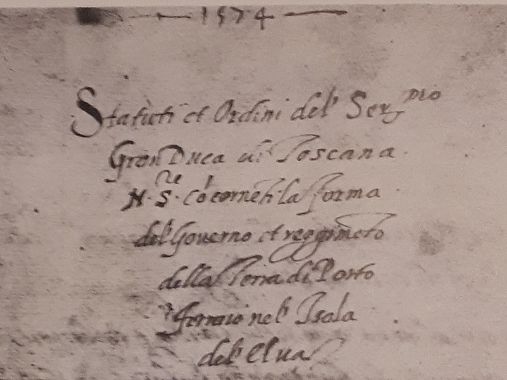 1574
Statuti et Ordini del Ser.mo
Gran Duca di Toscana
N. S.re co'cerneti la forma
del Governo et reggimeto
della Terra di Porto
ferraio nel Isola
del Elua